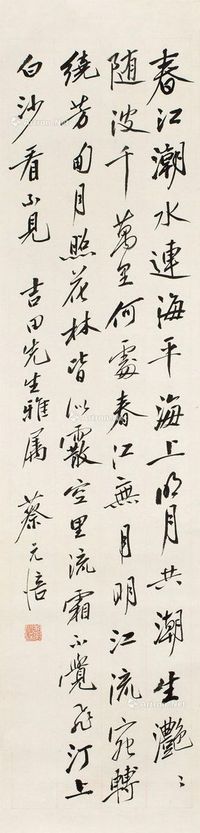 春江潮水連海平海上明月共潮生灔〻
随波千萬里何處春江無月明江流宛轉
繞芳甸月照花林皆似霰空里流霜不覺飛汀上
白沙看不見 吉田先生雅屬 蔡元培